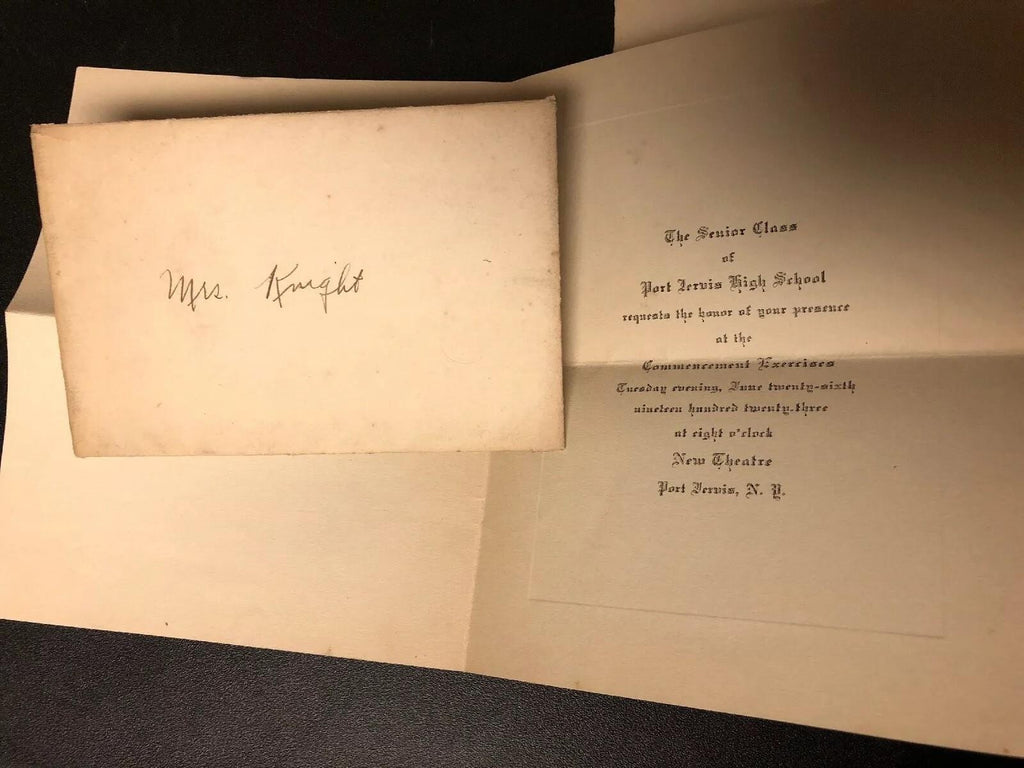 Mrs. Knight
The Senior Class
of
Port Jervis High School
requests the honor of your presence
at the
Commencement Exercises
Tuesday evening, June twenty-sixth
nineteen hundred twenty-three
at eight o'clock
New Theatre
Port Jervis, N. Y.